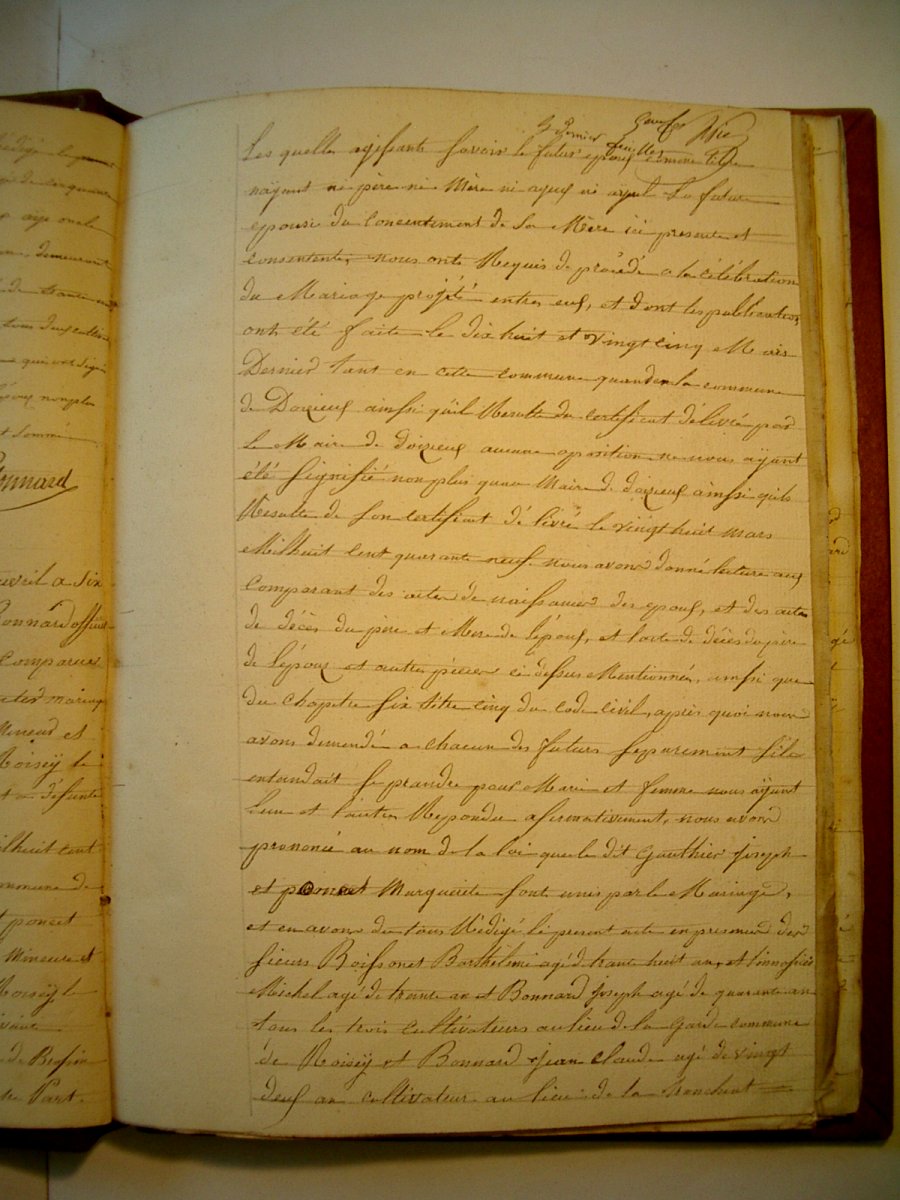 édigé le
demeurant
qui ont signé
nonplus
Bonnard
avril a six
Bonnard offici
comparus
mariage
Mineur et
Roisey le
et a défunte
milhuit cent
commune de
et poncet
Mineure et
Roisey le
de Bessin
Part.
5 dernier feuillet
Les quelle agissants savoir le futur epoux comme
nayant ni père ni Mère ni ayeux ni ayeul La future
epouse du concentement de Sa Mère ici presente et
consentente, nous onts Requis de procédé a la célébration
du Mariage projeté entres eux, et dont les publications
ont été faite le dix huit et vingt cinq Mars
Dernier tant en cette commune quandenla commune
de Doizieux ainssi quil Resulte du certificat délivré par
le Maire de doizieux aucune oposition ne nous ayant
été signifié nonplus quau Maire de doizieux ainssi quil
Resulte de son certificat délivré le vingt huit mars
Milhuit cent quarante neuf nous avons donné lecture aux
comparant des actes de naissance des epoux, et des actes
de décès du père et Mere de lépoux, et lacte de décès du père
de lépouse et autres pièces ci dessus Mentionnés, ainssi que
du chapitre six titre cinq du code civil, après quoi nous
avons demendé a chacun des futurs separement sils
entandait se prandre pour Mari et femme nous ayant
lun et l'autre Repondu afirmativement, nous avons
prononcé au nom de la loi que le dit Gauthier joseph
et poncet Marguerite sont unis par le Mariage,
et en avons du tous Rédigé le present acte en presence des
sieurs Boissonet Barthelmi agé de trante huit an, et
Michel agé de trente an et Bonnard joseph agé de quarante an
tous les trois cultivateurs au lieu de la Garde commune
de Roisey et Bonnard jean claude agé de vingt
deux an cultivateur au lieu de la